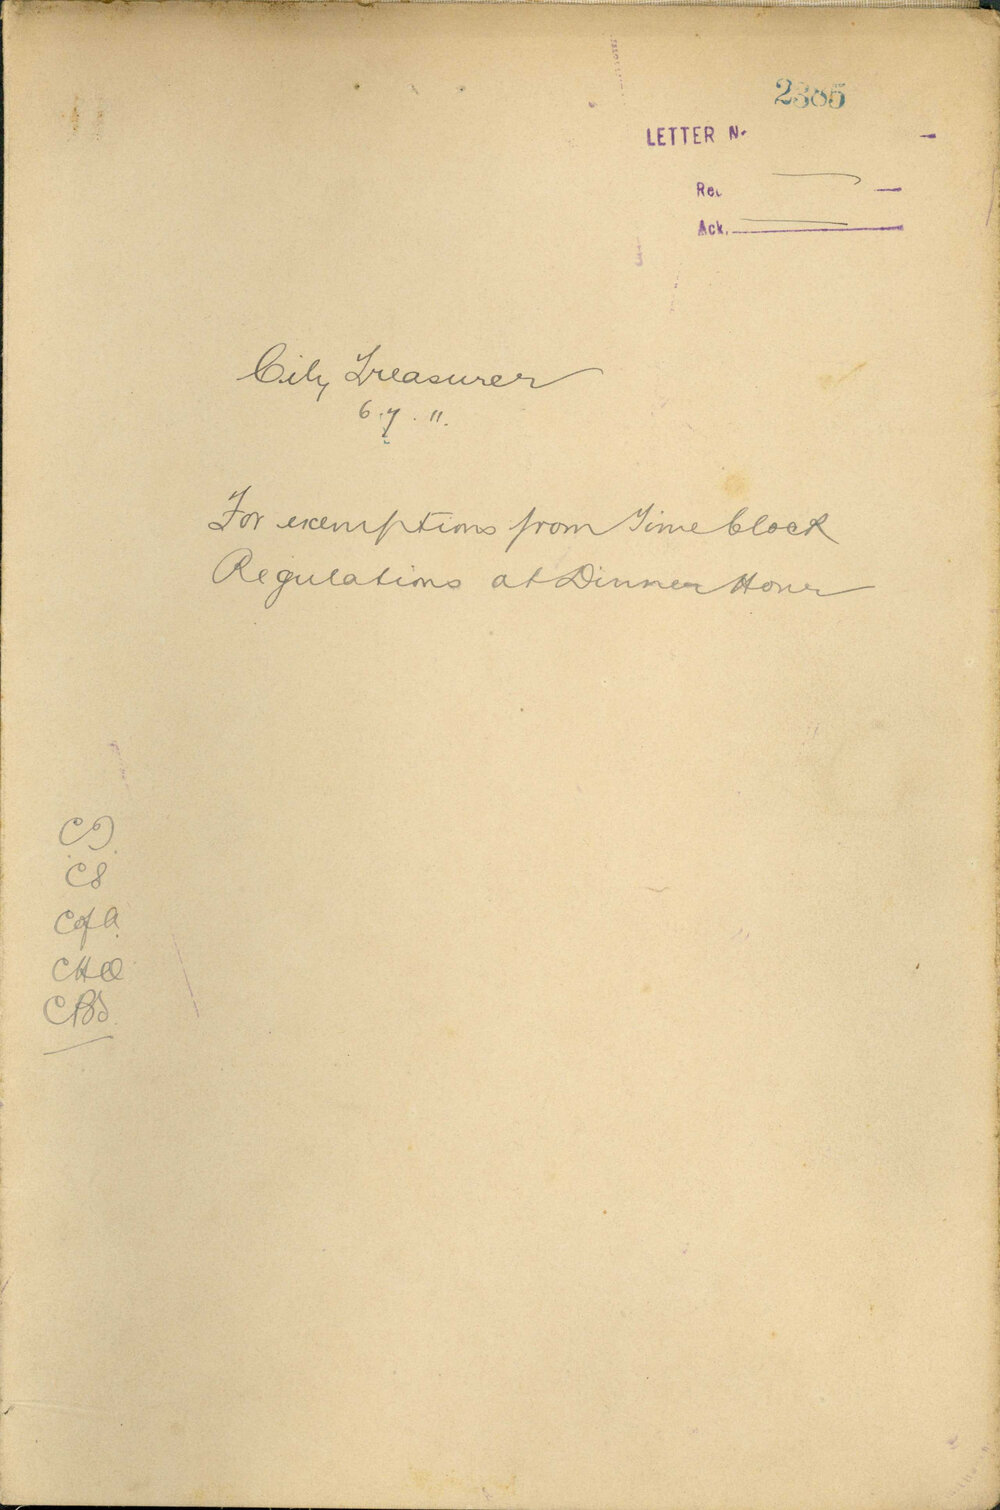 2385
LETTER No
Rec.
Ack.
City Treasurer
6.7.11.
For exemptions from Time Clock
Regulations at Dinner Hour
CS
C of A